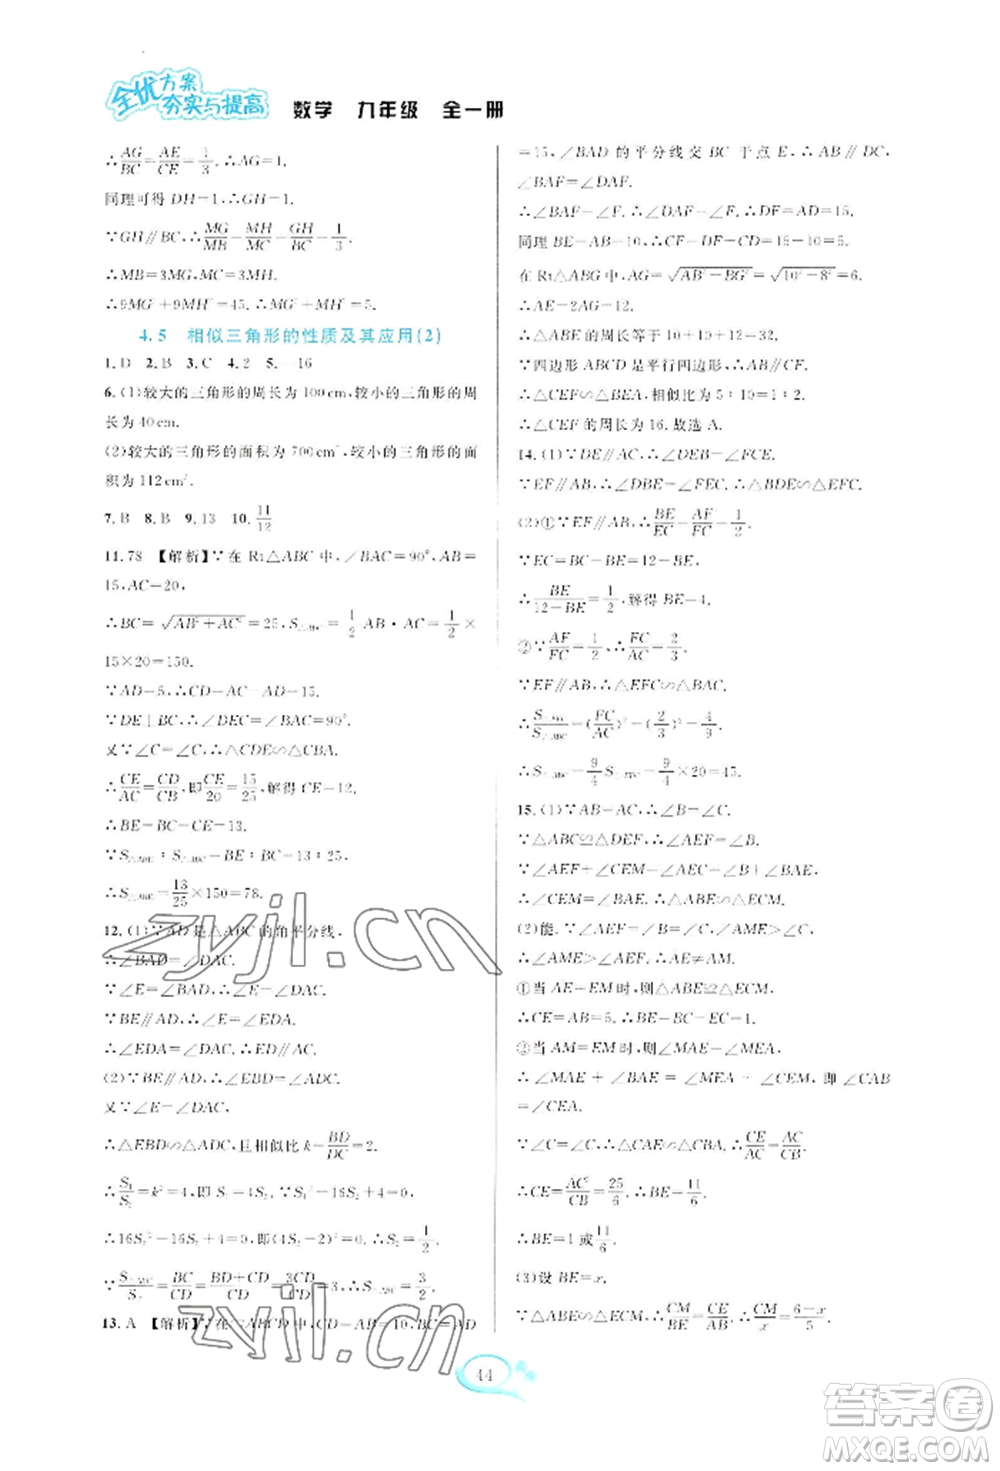 全优方案
夯实与提高
数学 九年级 全一册
∴AG/BC=AE/CE=1/3.∴AG=1.
同理可得 DH=1,∴GH=1.
∵GH∥BC,∴MG/MB=MH/MC=GH/BC=1/3.
∴MB=3MG,MC=3MH.
∴9MG²+9MH²=45.∴MG²+MH²=5.
4.5 相似三角形的性质及其应用(2)
1.D 2.B 3.C 4.2 5.-16
6.(1)较大的三角形的周长为100cm,较小的三角形的周
长为40cm.
(2)较大的三角形的面积为700cm²,较小的三角形的面
积为112cm².
7.B 8.B 9.13 10.11/12
11.78 【解析】∵在Rt△ABC中,∠BAC=90°,AB=
15,AC=20,
∴BC=√(AB²+AC²)=25,S△ABC=1/2 AB·AC=1/2×
15×20=150.
∵AD=5,∴CD=AC-AD=15.
∵DE⊥BC,∴∠DEC=∠BAC=90°.
又∵∠C=∠C,∴△CDE∽△CBA.
∴CE/AC=CD/CB,∴CE/20=15/25,解得CE=12.
∴BE=BC-CE=13.
∵S△ABE:S△ABC=BE:BC=13:25,
∴S△ABE=13/25×150=78.
12.(1)∵AD是△ABC的角平分线,
∴∠BAD=∠DAC.
∵∠E=∠BAD,∴∠E=∠DAC.
∵BE∥AD,∴∠E=∠EDA.
∴∠EDA=∠DAC.∴ED∥AC.
(2)∵BE∥AD,∴∠EBD=∠ADC.
又∵∠E=∠DAC,
∴△EBD∽△ADC,且相似比k=BD/DC=2.
∴S₁/S₂=k²=4,即S₁=4S₂.∵S₁²-16S₂+4=0,
∴16S₂²-16S₂+4=0,即(4S₂-2)²=0.∴S₂=1/2.
∵S△ABC/S₂=BC/CD=(BD+CD)/CD=3CD/CD=3,∴S△ABC=3/2.
13.A 【解析】∵在▱ABCD中,CD=AB=10,BC=AD
=15,∠BAD的平分线交BC于点E,∴AB∥DC,
∠BAF=∠DAF.
∴∠BAF=∠F.∴∠DAF=∠F.∴DF=AD=15.
同理BE=AB=10,∴CF=DF-CD=15-10=5.
在Rt△ABG中,∴AG=√(AB²-BG²)=√(10²-8²)=6.
∴AE=2AG=12.
∴△ABE的周长等于10+10+12=32.
∵四边形ABCD是平行四边形,
∴△CEF∽△BEA,相似比为5:10=1:2.
∴△CEF的周长为16.故选A.
14.(1)∵DE∥AC,∴∠DEB=∠FCE.
∵EF∥AB,∴∠DBE=∠FEC.∴△BDE∽△EFC.
(2)①∵EF∥AB,∴BE/EC=AF/FC=1/2.
∵EC=BC-BE=12-BE,
∴BE/(12-BE)=1/2,解得BE=4.
②∵AF/FC=1/2,∴FC/AC=2/3.
∵EF∥AB,∴△EFC∽△BAC.
∴S△EFC/S△ABC=(FC/AC)²=(2/3)²=4/9.
∴S△ABC=9/4 S△EFC=9/4×20=45.
15.(1)∵AB=AC,∴∠B=∠C.
∵△ABC≌△DEF,∴∠AEF=∠B.
∵∠AEF+∠CEM=∠AEC=∠B+∠BAE,
∴∠CEM=∠BAE.∴△ABE∽△ECM.
(2)能.∵∠AEF=∠B=∠C,∠AME>∠C,
∴∠AME>∠AEF.∴AE≠AM.
①当AE=EM时,则△ABE≌△ECM,
∴CE=AB=5.∴BE=BC-EC=1.
②当AM=EM时,则∠MAE=∠MEA.
∴∠MAE+∠BAE=∠MEA+∠CEM,即∠CAB
=∠CEA.
∵∠C=∠C,∴△CAE∽△CBA.∴CE/AC=AC/CB.
∴CE=AC²/CB=25/6.∴BE=11/6.
∴BE=1或11/6.
(3)设BE=x.
∵△ABE∽△ECM,∴CM/BE=CE/AB.∴CM/x=(6-x)/5.
44
zyjl.cn
zyjl.cn
答案圈
MXQE.COM